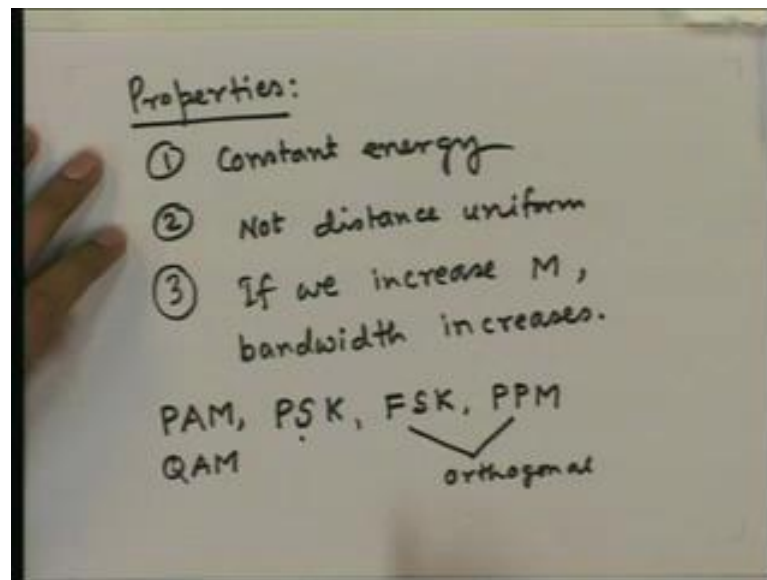 Properties:
① Constant energy
② Not distance uniform
③ If we increase M,
bandwidth increases.
PAM, PSK, FSK, PPM
QAM
orthogonal